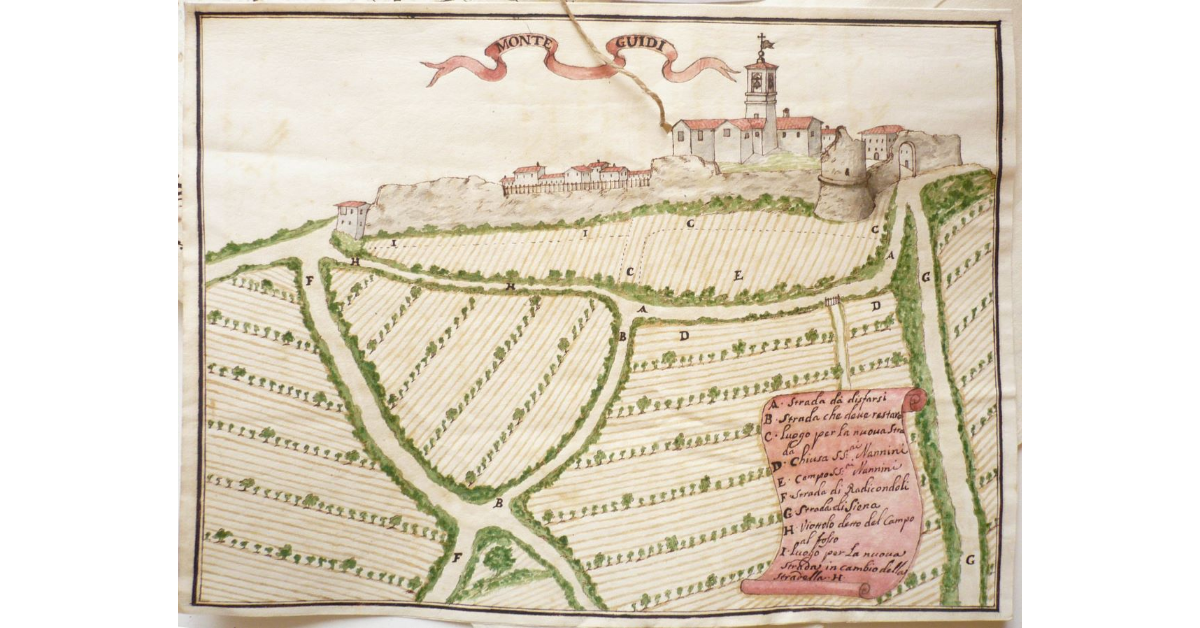 MONTE GUIDI
I
I
C
C
H
F
C
E
A
G
H
A
D
B
D
A. Strada da disfarsi
B. Strada che deve restare
C. luogo per la nuova Stra
da
D. Chiusa SS.ri Nannini
E. Campo SS.ri Nannini
F. Strada di Radicondoli
G. Strada di Siena
H. Viottolo detto del Campo
al fosso
I. luogo per la nuova
strada, in cambio della
stradella H
B
F
G